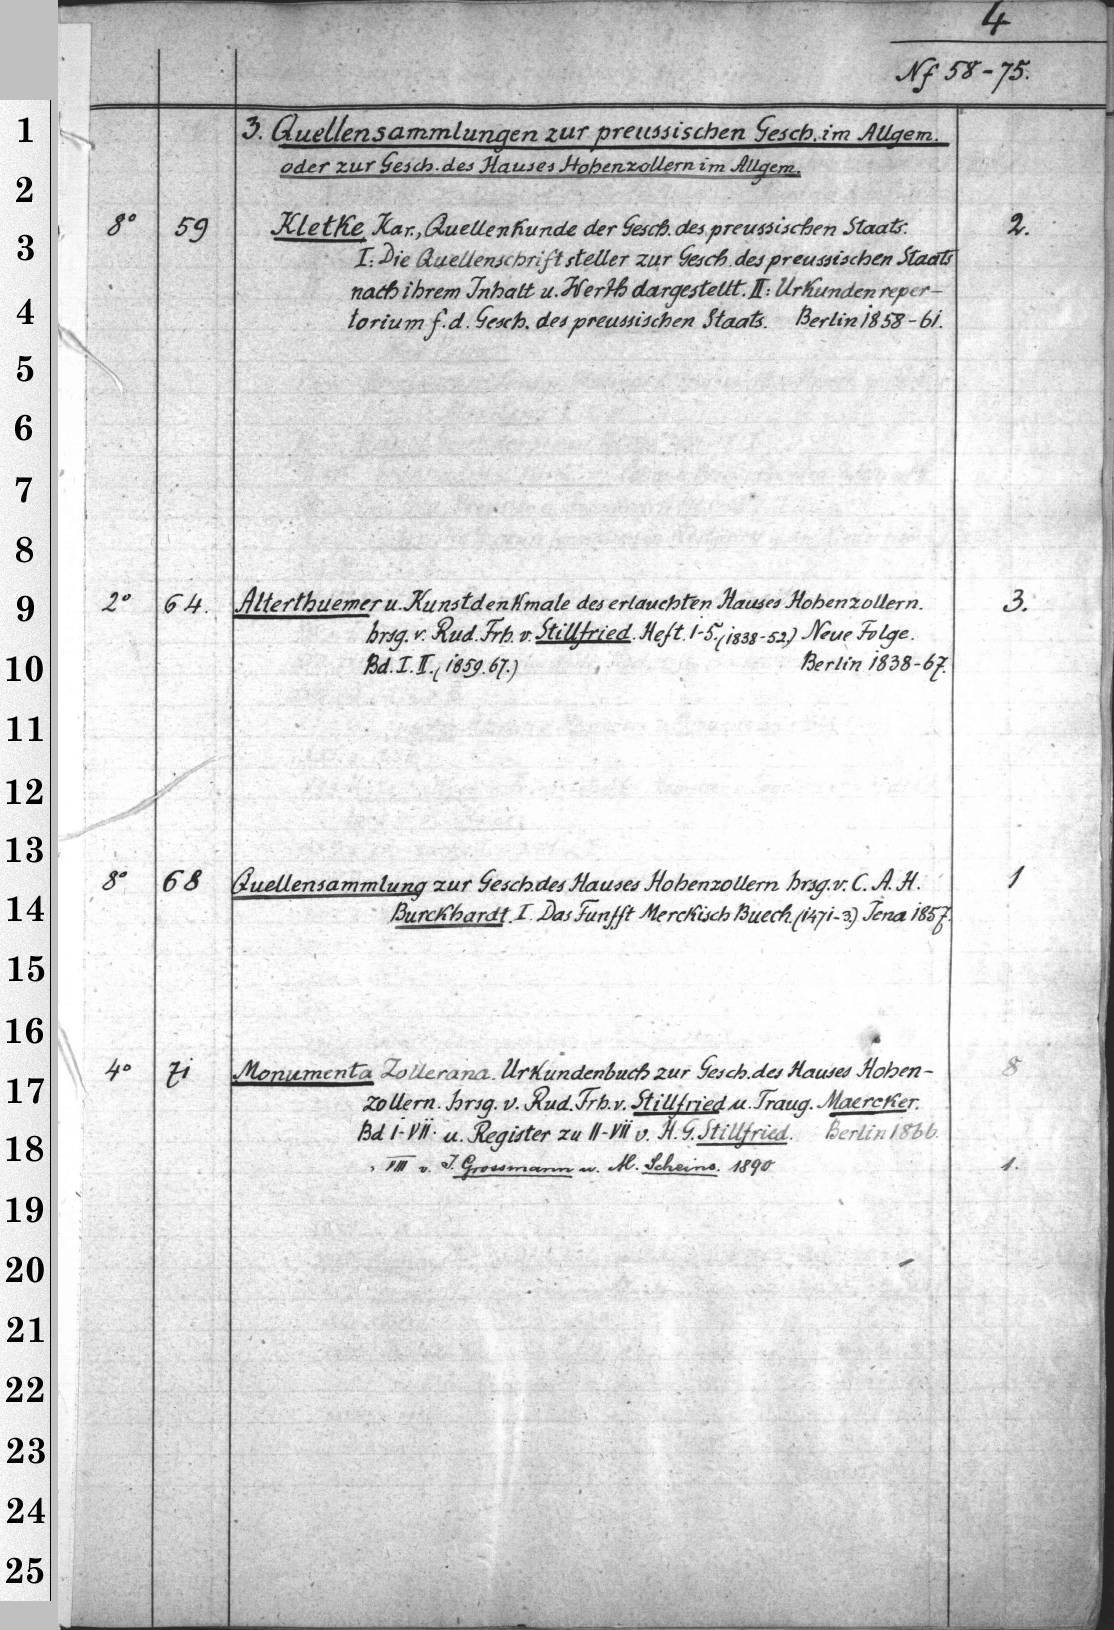 4
Nf 58-75.
1
3. Quellensammlungen zur preussischen Gesch. im Allgem.
oder zur Gesch. des Hauses Hohenzollern im Allgem.
2
8° 59 Kletke Kar., Quellenkunde der Gesch. des preussischen Staats. 2.
3
I: Die Quellenschriftsteller zur Gesch. des preussischen Staats
nach ihrem Inhalt u. Werth dargestellt. II: Urkundenreper-
4
torium f. d. Gesch. des preussischen Staats. Berlin 1858-61.
5
6
7
8
9
2° 64. Alterthuemer u. Kunstdenkmale des erlauchten Hauses Hohenzollern. 3.
hrsg. v. Rud. Frh. v. Stillfried. Heft. 1-5. (1838-52.) Neue Folge.
10
Bd. I. II. (1859. 67.) Berlin 1838-67.
11
12
13
8° 68 Quellensammlung zur Gesch. des Hauses Hohenzollern hrsg. v. C. A. H. 1
14
Burckhardt. I. Das Funfft Merckisch Buech. (1471-3.) Jena 1857.
15
16
4° 71 Monumenta Zollerana. Urkundenbuch zur Gesch. des Hauses Hohen- 8
17
zollern. hrsg. v. Rud. Frh. v. Stillfried u. Traug. Maercker.
Bd I-VII. u. Register zu II-VII v. H. G. Stillfried. Berlin 1866.
18
" VIII v. J. Grossmann u. M. Scheins. 1890 1.
19
20
21
22
23
24
25